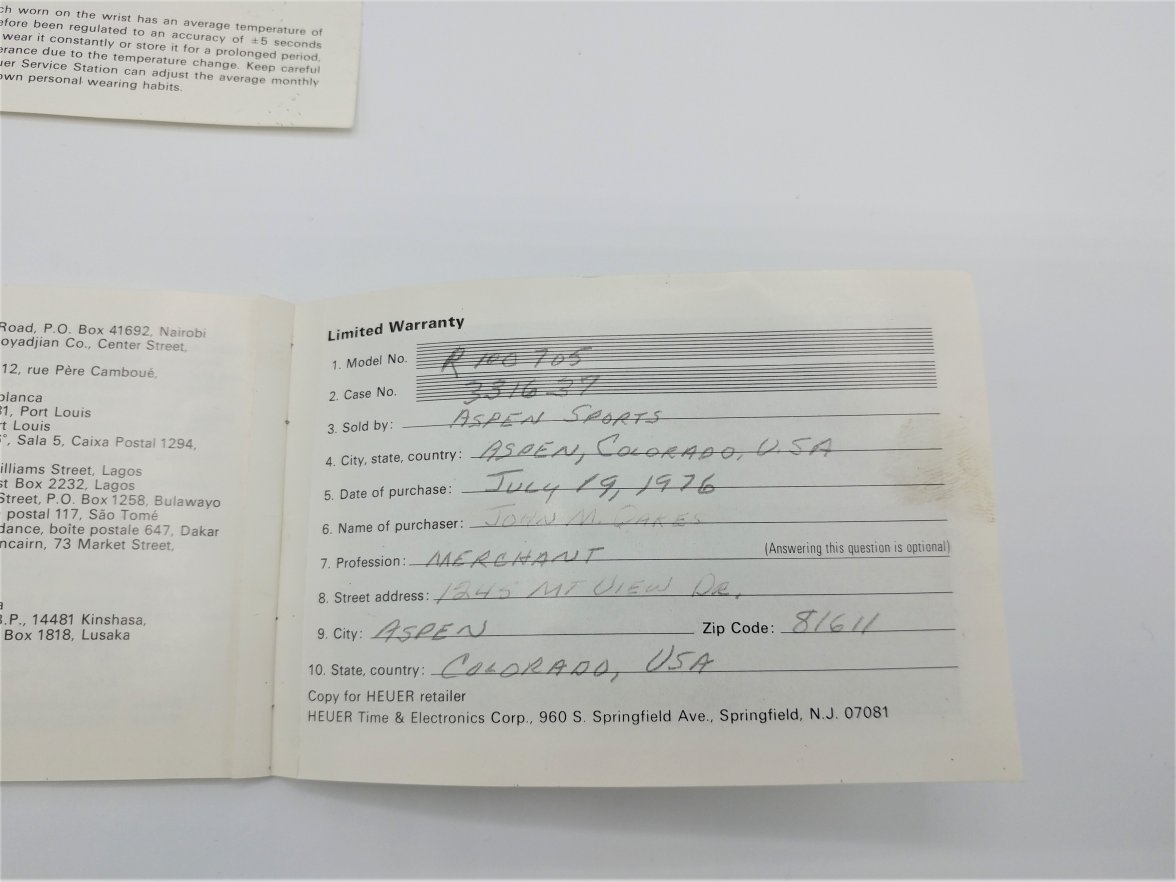 ch worn on the wrist has an average temperature of
efore been regulated to an accuracy of ±5 seconds
wear it constantly or store it for a prolonged period,
erance due to the temperature change. Keep careful
uer Service Station can adjust the average monthly
own personal wearing habits.
Road, P.O. Box 41692, Nairobi
oyadjian Co., Center Street,
12, rue Père Camboué,
blanca
31, Port Louis
rt Louis
°, Sala 5, Caixa Postal 1294,
illiams Street, Lagos
st Box 2232, Lagos
Street, P.O. Box 1258, Bulawayo
postal 117, São Tomé
dance, boîte postale 647, Dakar
ncairn, 73 Market Street,
a
B.P., 14481 Kinshasa,
Box 1818, Lusaka
Limited Warranty
1. Model No. R 100 705
2. Case No. 331637
3. Sold by: ASPEN SPORTS
4. City, state, country: ASPEN, COLORADO, U.S.A
5. Date of purchase: JULY 19, 1976
6. Name of purchaser: JOHN M. OAKES
7. Profession: MERCHANT (Answering this question is optional)
8. Street address: 1245 MT VIEW DR.
9. City: ASPEN Zip Code: 81611
10. State, country: COLORADO, USA
Copy for HEUER retailer
HEUER Time & Electronics Corp., 960 S. Springfield Ave., Springfield, N.J. 07081